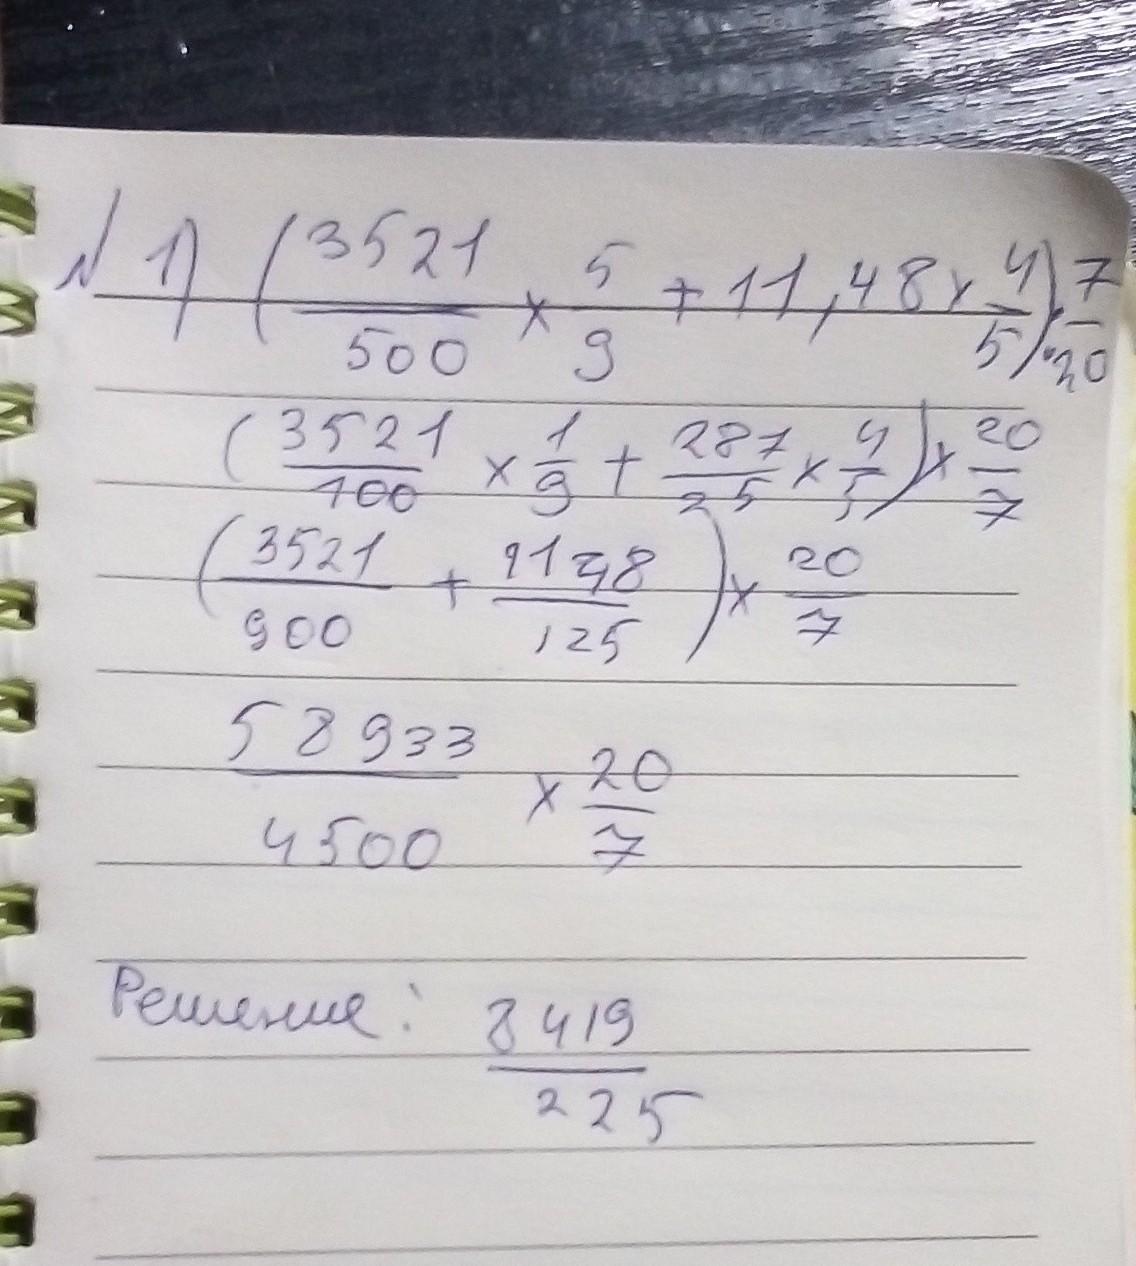 № 1) (3521/500 × 5/9 + 11,48 × 4/5) : 7/20
(3521/100 × 1/9 + 287/25 × 4/5) × 20/7
(3521/900 + 1148/125) × 20/7
58933/4500 × 20/7
Решение: 8419/225